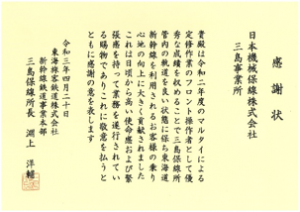 感謝状
日本機械保線株式会社
三島事業所
貴殿は令和二年度のマルタイによる
定修作業のフロント操作者として優
秀な成績を収めることで三島保線所
管内の軌道を良い状態に保ち東海道
新幹線を利用されるお客様の乗り
心地の向上に大きく貢献されました
これは日頃から高い使命感および緊
張感を持って業務を遂行されてい
る賜物でありこれに敬意を払うと
ともに感謝の意を表します
令和三年四月二十日
東海旅客鉄道株式会社
新幹線鉄道事業本部
三島保線所長 渕上 洋輔